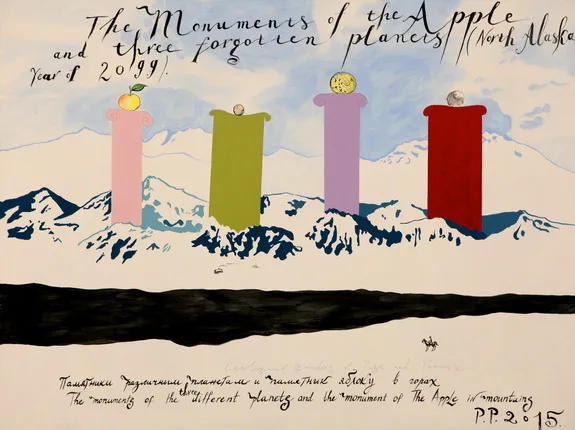 The Monuments of the Apple
and three forgotten planets (North Alaska
Year of 2099).
Памятники различным планетам и памятник яблоку в горах
The monuments of the three different planets and the monument of The Apple in mountains
P.P. 2015.